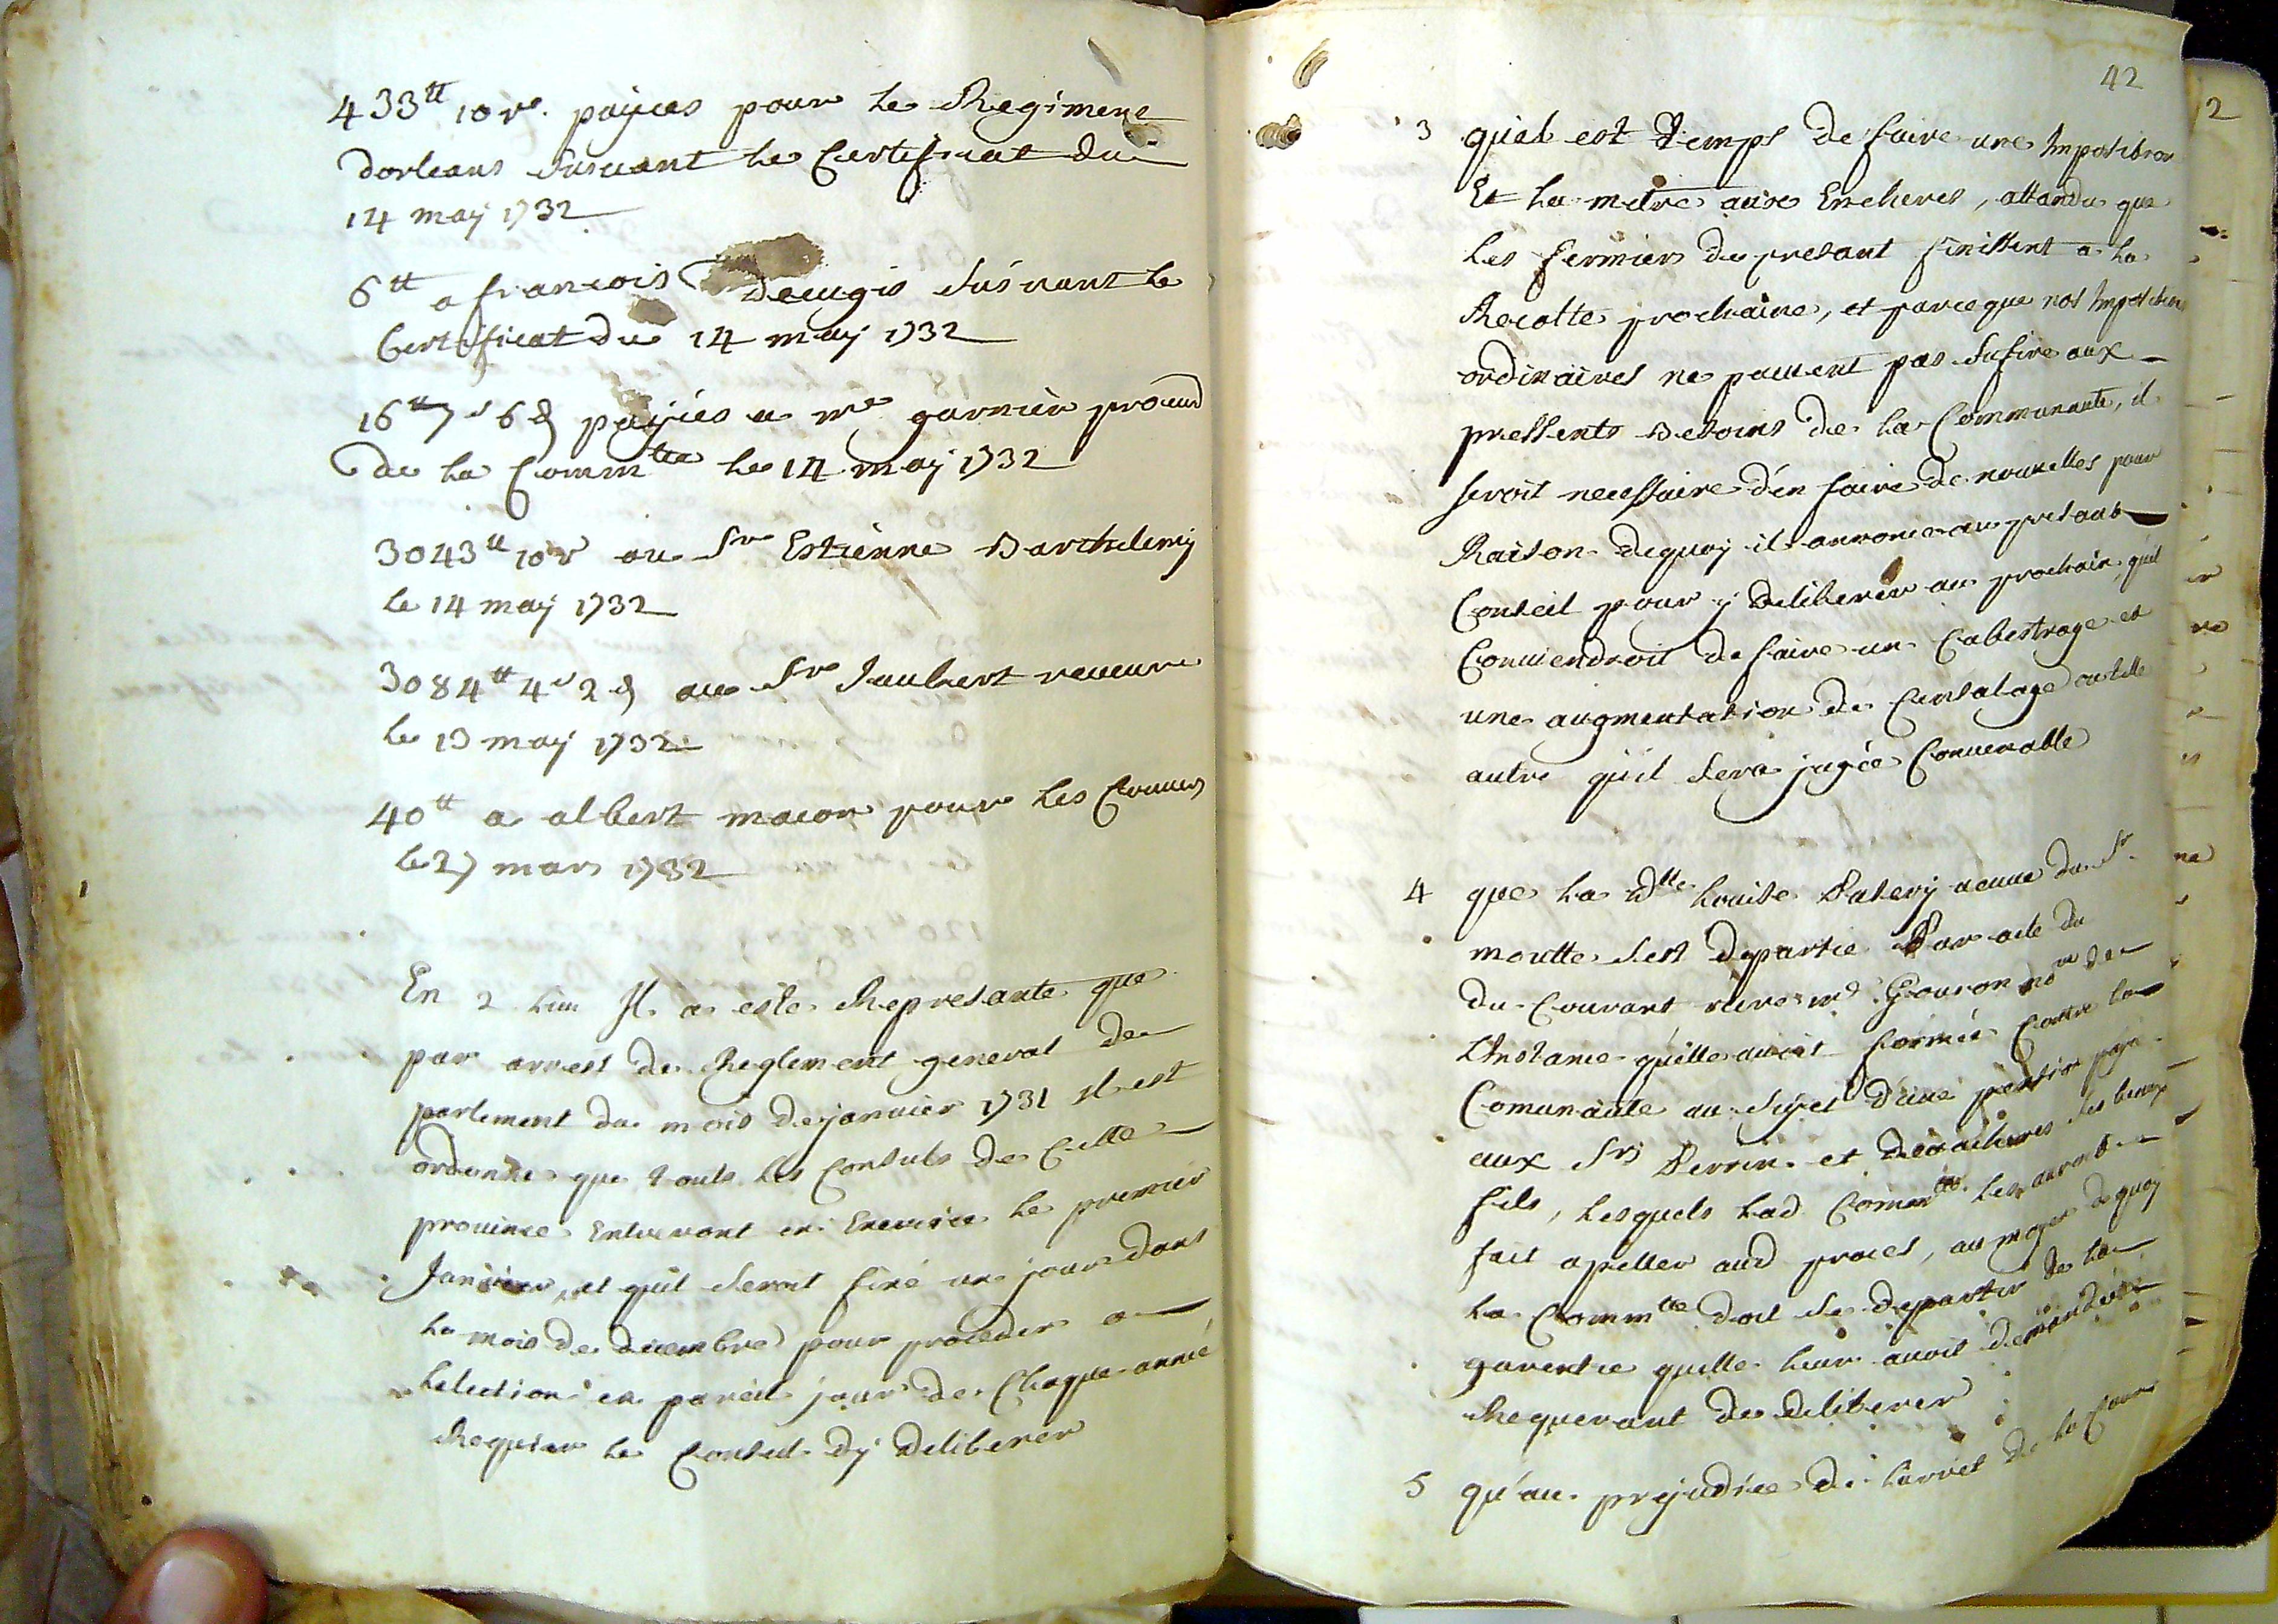 433tt 10 s. payées pour le Regiment
dorleans suivant le Certificat du
14 may 1732
6tt a francois decugis suivant le
Certificat du 14 may 1732
16tt 7 s 6 d payées a me garnier
de la Commtée le 14 may 1732
3043tt 10 s au Sr Estienne Barthelemy
le 14 may 1732
3084tt 4 s 2 d au Sr Jaubert
le 13 may 1732
40tt a albert macon pour les
le 27 mars 1732
En 2 lieu Il a esté Represanté que
par arrest de Reglement general de
parlement du mois de janvier 1731 il est
ordonné que touts les Consuls de Cette
province Entreront en Exercice le premier
Janvier, et quil seroit fixé un jour dans
le mois de decembre pour proceder a
lelection en pareil jour de Chaque année
Requier le Conseil dy deliberer
42
3 quil est temps de faire une Imposition
Et la metre aux Encheres, attandu que
les fermiers du presant finissent a la
Recolte prochaine, et parceque nos Impositions
ordinaires ne peuvent pas sufire aux
pressents Besoins de la Communauté, il
seroit necessaire d'en faire de nouvelles pour
Raison dequoy il annonce au presant
Conseil pour y deliberer au prochain, quil
Conviendroit de faire un Cabestrage et
une augmentation de Censalage ou telle
autre quil sera jugée Convenable
4 que la dlle Louise Patery veuve du Sr
moutte sest departie Par acte du
du Courant rière me Gouron nore de
L'Instance quelle avoit formée Contre la
Comunauté au sujet d'une pension
aux Srs Perrin et
fils, lesquels lad. Commté les auroit
fait apeller aud proces, au moyen dequoy
la Commté doit se departir de la
garentie quelle leur avoit demandée
Requerant de deliberer
5 qu'au prejudice de l'arret de la Cour
2